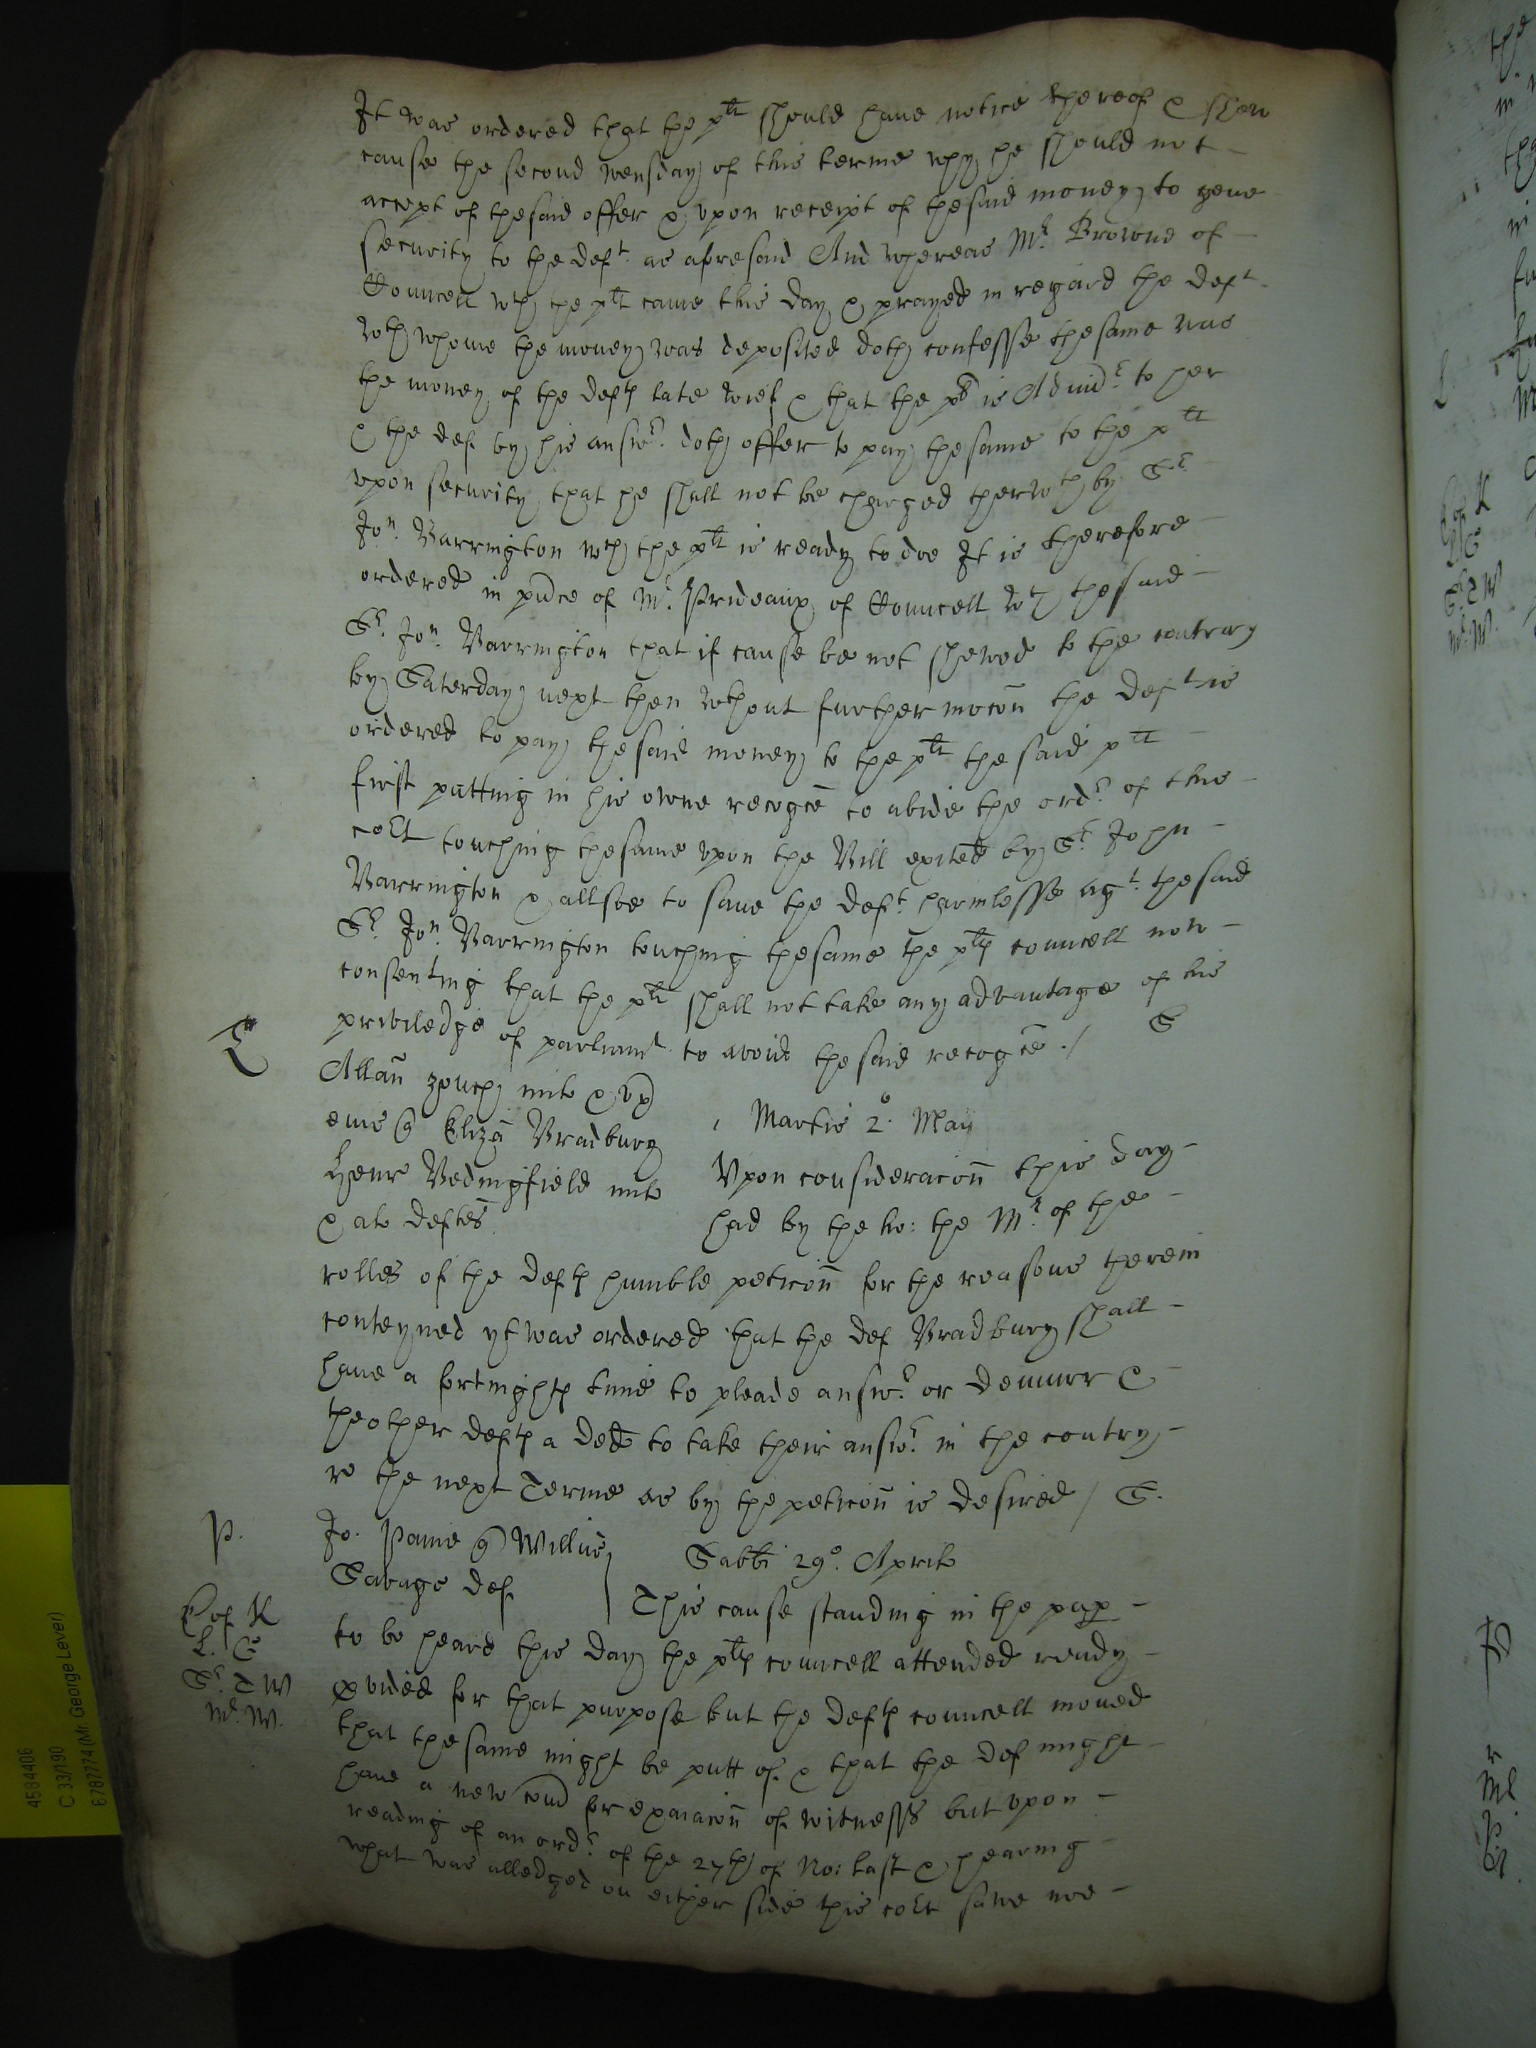 It was ordered that the plt should have notice thereof & shew
cause the second wensday of this terme why he should not
accept of thesaid offer & vpon receipt of thesaid money to geue
security to the deft. as aforesaid And whereas Mr. Browne of
Councell wth the plt came this day & prayed in regard the deft
wth whome the money was deposited doth confesse thesame was
the money of the defts late wief & that the plt is Admidr. to her
& the def by his answr. doth offer to pay thesame to the plt
vpon security that he shall not be charged therwth by Sr.
Jon. Barrington wch the plt is ready to doe It is therefore
ordered in pñce of Mr. Prideaux of Councell wth thesaid
Sr. Jon. Barrington that if cause be not shewed to the contrary
by Saterday next then wthout further mocõn the deft is
ordered to pay thesaid money to the plt the said plt
first putting in his owne recogce to abide the ordr. of this
cort touching thesame vpon the Bill exited by Sr. John
Barrington & allsoe to saue the deft. harmlesse agt. thesaid
Sr. Jon. Barrington touching thesame the plts councell now
consenting that the plt shall not take any advantage of his
priviledge of parliamt. to avoid the said recogce./ S
Z
Allan zouch milt & vx
eius @ Eliza Bradbury
Henr Bedingfield milt
& alo deftes
Martis 2o. Maij
Vpon consideracõn this day
had by the ho: the Mr. of the
rolles of the defts humble peticõn for the reasons therein
conteyned yt was ordered that the def Bradbury shall
haue a fortnights time to pleade answr. or demurr &
theother defts a ded to take their answr. in the contry
re the next Terme as by the peticõn is desired / S.
P.
Jo. Paine @ Willm
Savage def
Sabbi 29o. Aprilis
E of K
L. C
Sr. T W
Mr. W.
This cause standing in the pap
to be heard this day the plts councell attended ready
pvided for that purpose but the defts councell moued
that thesame might be putt of & that the def might
haue a new com for exaiacõn of witnesss but vpon
reading of an ordr. of the 27th of No: last & hearing
what was alledged on either side this cort sawe noe
4584406
C 33/190
6787774 (Mr George Lever)